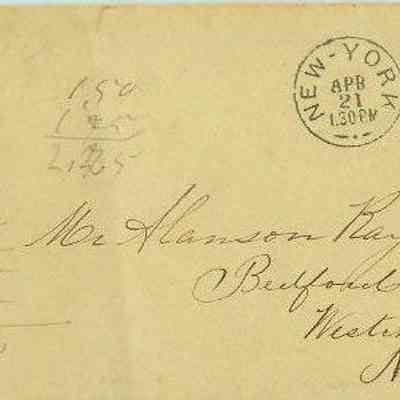 NEW-YORK
APR
21
1.30 PM
1.50
Mr Alanson Ray
Bedford
Westch
N